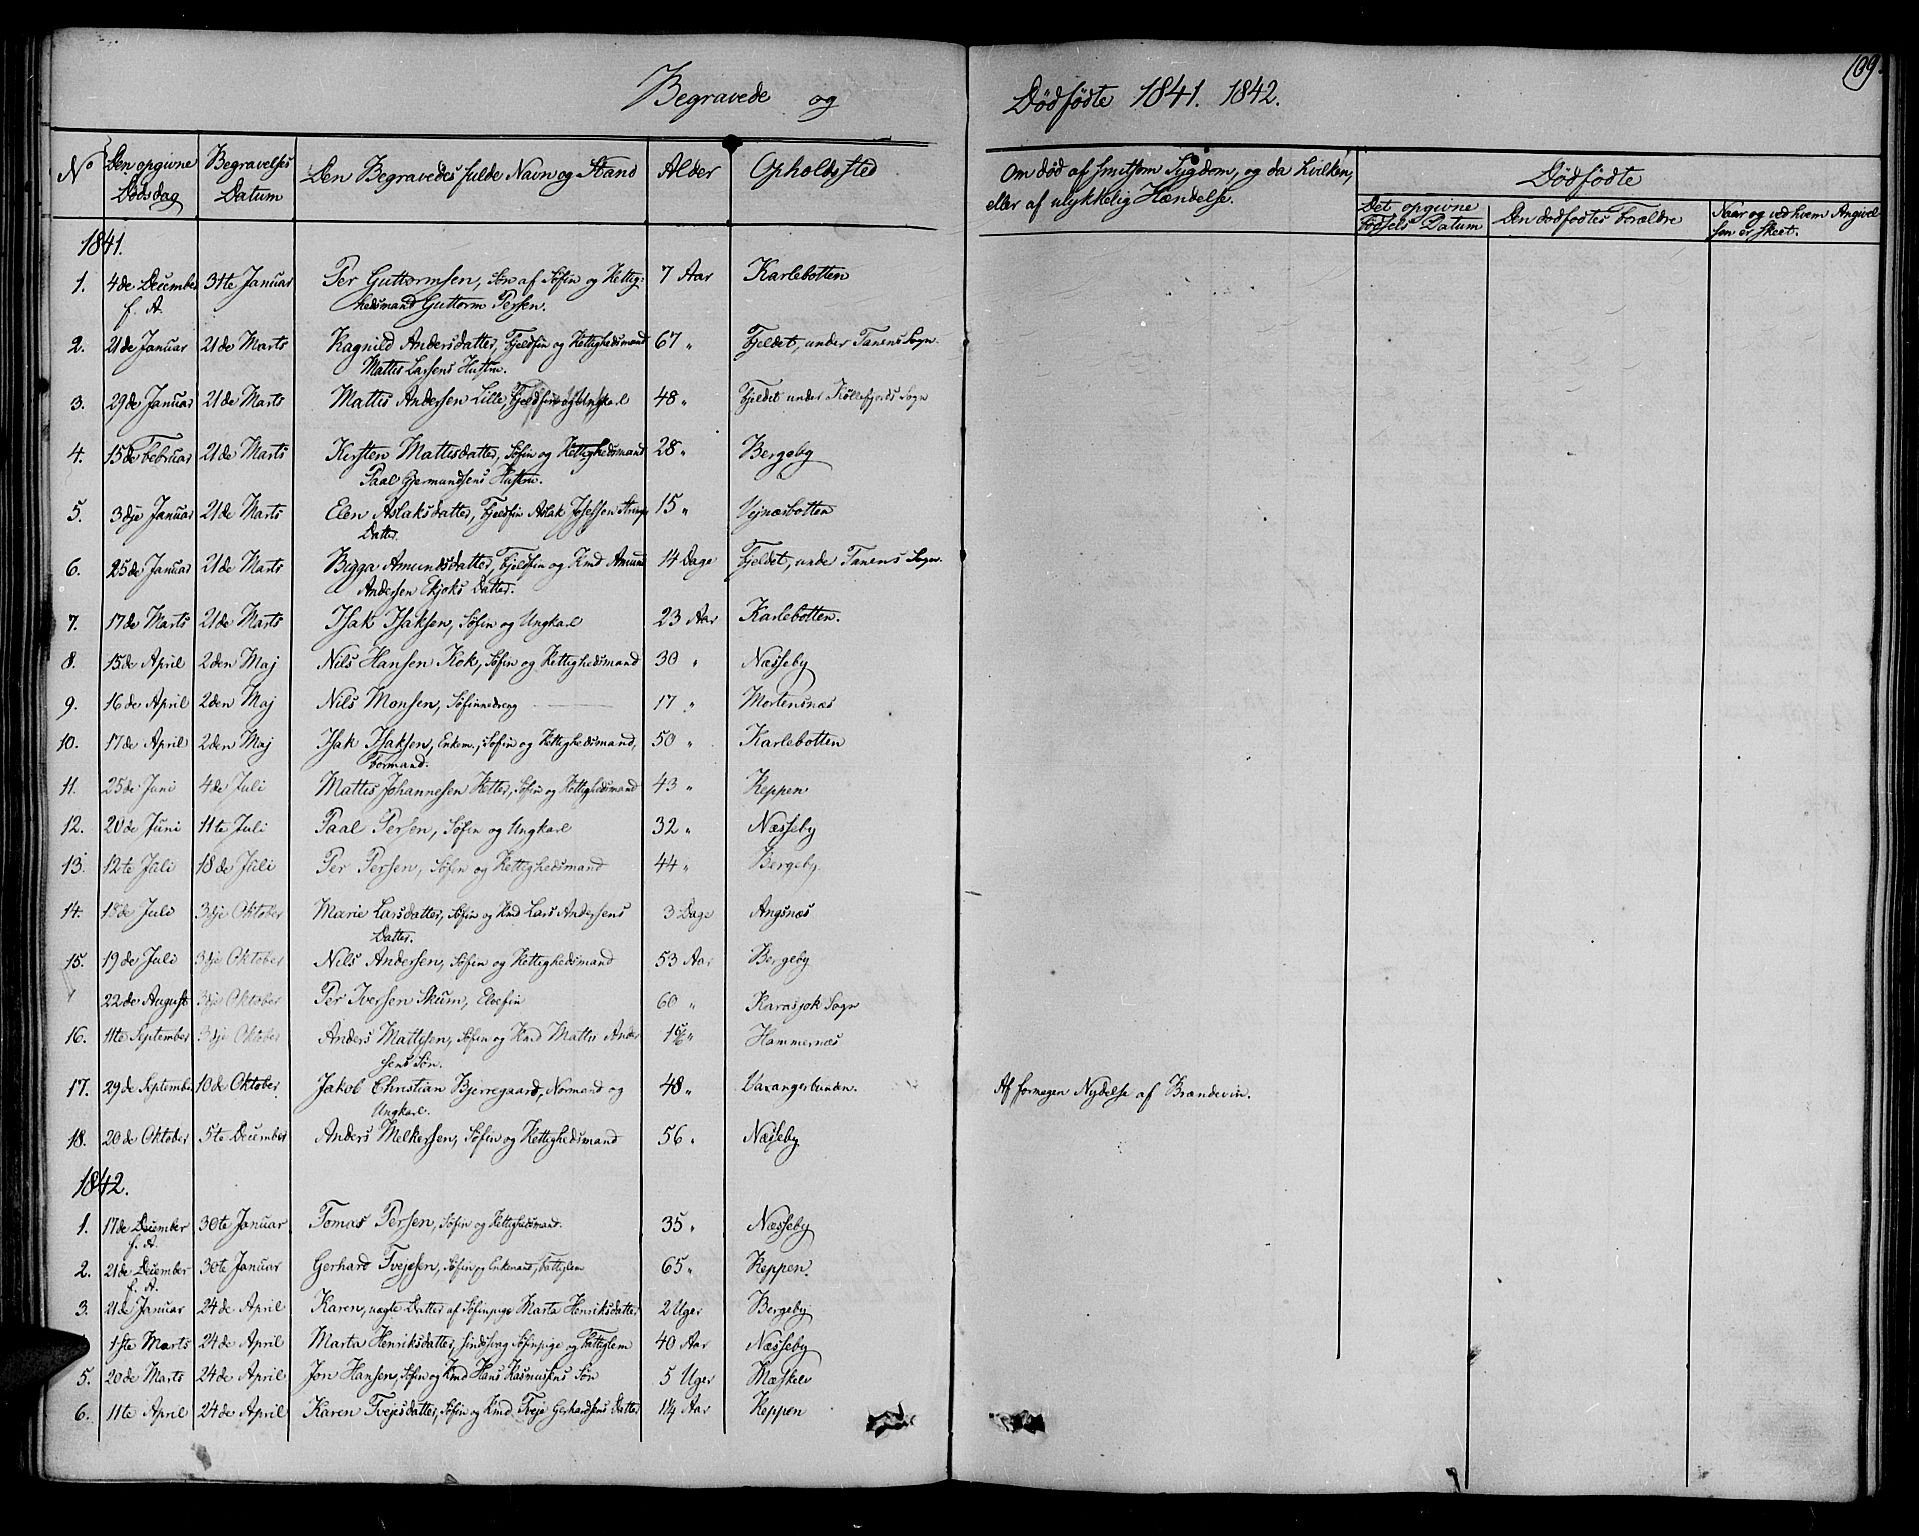 109.
Begravede og Dödfödte 1841. 1842.
No Den opgivne Dödsdag Begravelses Datum Den Begravedes fulde Navn og Stand Alder Opholdssted Om död af smitsom Sygdom, og da hvilken, eller af ulykkelig Hændelse. Dödfödte
Det opgivne Födsels Datum Den dödfödtes Forældre Naar og ved hvem Angivelsen er skeet.
1841.
1. 4de December 31te Januar Per Guttormsen, Sön af Söfin og Rettig- 7 Aar Karlebotten
f. A. hedsmand Guttorm Persen.
2. 21de Januar 21de Marts Ragnild Andersdatter, Fjeldfin og Rettighedsmand 67 " Fjeldet, under Tanens Sogn.
Mattis Larsens Hustru.
3. 29de Januar 21de Marts Mattis Andersen Lille, Fjeldfin og Ungkarl 48 " Fjeldet under Kollefjords Sogn
4. 15de Februar 21de Marts Kirsten Mattisdatter, Söfin og Rettighedsmand 28 " Bergeby
Paal Gjermundsens Hustru.
5. 3dje Januar 21de Marts Elen Aslaksdatter, Fjeldfin Aslak Josefsen 15 " Vejnæsbotten
Datter.
6. 25de Januar 21de Marts Bigga Amundsdatter, Fjeldfin og Rmd Amund 14 Dage Fjeldet, unde Tanens Sogn.
Andersen Datter.
7. 17de Marts 21de Marts Isak Isaksen, Söfin og Ungkarl 23 Aar Karlebotten.
8. 15de April 2den Maj Nils Hansen Kok, Söfin og Rettighedsmand 30 " Næsseby
9. 16de April 2den Maj Nils Monsen, Söfinnedreng 17 " Mortensnæs
10. 17de April 2den Maj Isak Isaksen, Enkem., Söfin og Rettighedsmand, 50 " Karlebotten
Formand.
11. 25de Juni 4de Juli Mattis Johannesen Retter, Söfin og Rettighedsmand 43 " Reppen
12. 20de Juni 11te Juli Paal Persen, Söfin og Ungkarl 32 " Næsseby
13. 12te Juli 18de Juli Per Persen, Söfin og Rettighedsmand 44 " Bergeby.
14. 15de Juli 3dje Oktober Marie Larsdatter, Söfin og Rmd Lars Andersens 3 Dage Angsnæs
Datter.
15. 19de Juli 3dje Oktober Nils Andersen, Söfin og Rettighedsmand 53 Aar Bergeby
22de August 3dje Oktober Per Iversen Skum, Elvefin 60 " Karasjok Sogn
16. 11te September 3dje Oktober Anders Mattisen, Söfin og Rmd Mattis Ander " Hammernæs
sens Sön.
17. 29de September 10de Oktober. Jakob Christian Bjerregaard, Normand og 48 " Varangerbunden. Af formegen Nydelse af Brændeviin.
Ungkarl.
18. 20de Oktober 5te December Anders Melkersen, Söfin og Rettighedsmand 56 " Næsseby
1842.
1. 17de December 30te Januar Tomas Persen, Söfin og Rettighedsmand. 35 " Næsseby
f. A.
2. 21de December 30te Januar Gerhard Tvejesen, Söfin og Enkemand, Fattiglem 65 " Reppen.
f. A.
3. 21de Januar 24de April Karen, uægte Datter af Söfinpige Marta Henriksdatter 2 Uger Bergeby
1ste Marts 24de April Marta Henriksdatter, sindssvag Söfinpige og Fattiglem 40 Aar Næsseby
5. 20de Marts 24de April Jon Hansen, Söfin og Rmd Hans Rasmusens Sön 5 Uger Mæskelv
6. 11te April 24de April Karen Tvejesdatter, Söfin og Rmd Tveje Gerhardsens Datter 1¼ Aar Reppen